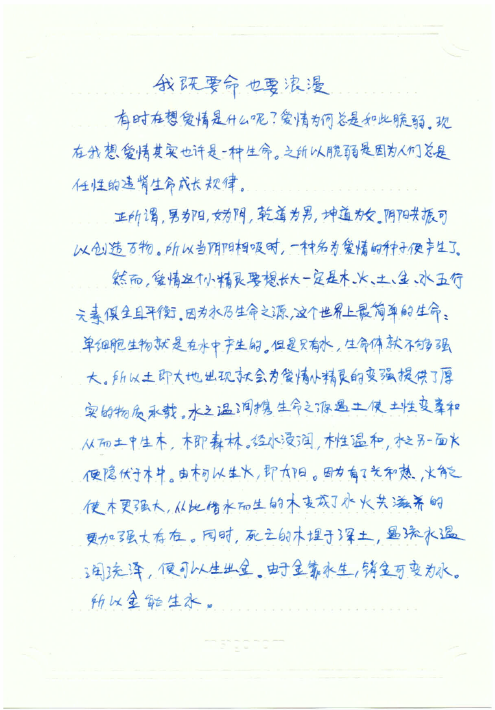 我既要命也要浪漫
有时在想爱情是什么呢?爱情为何总是如此脆弱。现
在我想爱情其实也许是一种生命。之所以脆弱是因为人们总是
任性的违背生命成长规律。
正所谓,男为阳,女为阴,乾道为男,坤道为女。阴阳共振可
以创造万物。所以当阴阳相吸时,一种名为爱情的种子便产生了。
然而,爱情这个小精灵要想长大一定是木、火、土、金、水五行
元素俱全且平衡。因为水乃生命之源,这个世界上最简单的生命:
单细胞生物就是在水中产生的。但是只有水,生命体就不够强
大。所以土即大地出现就会为爱情小精灵的变强提供了厚
实的物质承载。水之温润携生命之源遇土使土性变柔和
从而土中生木,木即森林。经水浸润,木性温和,水之另一面火
便隐伏于木中。由木可以生火,即为阳。因为有了光和热,火能
使木更强大,从此借水而生的木变成了水火共滋养的
更加强大存在。同时,死亡的木埋于深土,遇流水温
润洗泽,便可以生出金。由于金靠水生,销金可变为水。
所以金能生水。